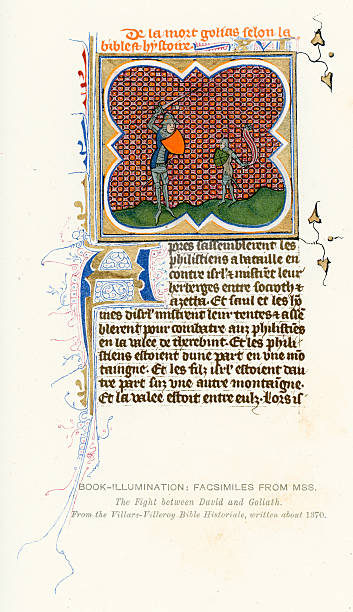 De la mort golias selon la
bible & hystoire
Apres sassemblerent les
philistiens a bataille en
contre isrl & mistrēt leur
herberges entre socoth &
azecha. Et saul et les fo
ues disrl mistrent leur tentes & asse
blerent pour combatre auz philistiēs
en la valee de therebint. Et les phili
stiens estoient dune part en une mō
taingne. Et les filz isrl estoient dau
tre part sur une autre montaigne.
Et la valee estoit entre eulz. Lors is
BOOK-ILLUMINATION: FACSIMILES FROM MSS.
The Fight between David and Goliath.
From the Villars-Villeroy Bible Historiale, written about 1370.